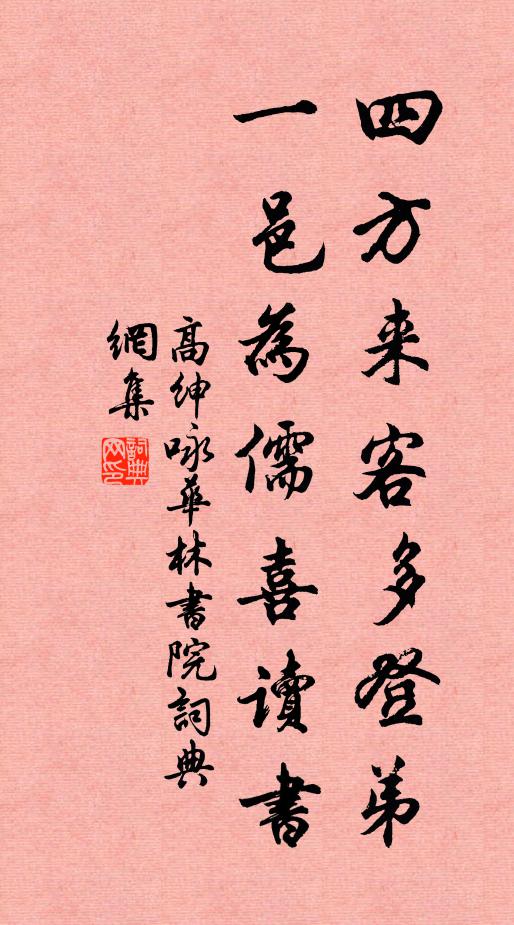 四方来客多登弟
一邑為儒喜读書
高绅咏華林書院詞典
網集
詞典網印